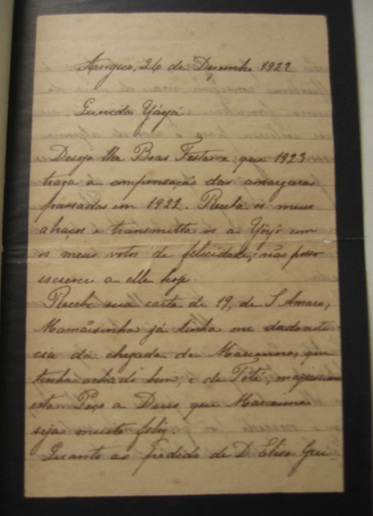 Angico, 26 de Dezembro 1922
Querida Yáyá
Desejo lhe Boas Festas e que 1923
traga a compensação das amarguras
passadas em 1922. Receba os meus
abraços e transmitta os a Yôyô com
os meus votos de felicidade, não posso
escrever a elle hoje.
Recebi sua carta de 19, de S. Amaro,
Mamãisinha já tinha me dado noti
cia da chegada de Marianna, que
tinha achado bem, e de Tété,
esta. Peço a Deus que Marianna
seja muito feliz.
Quanto ao pedido de D. Elisa